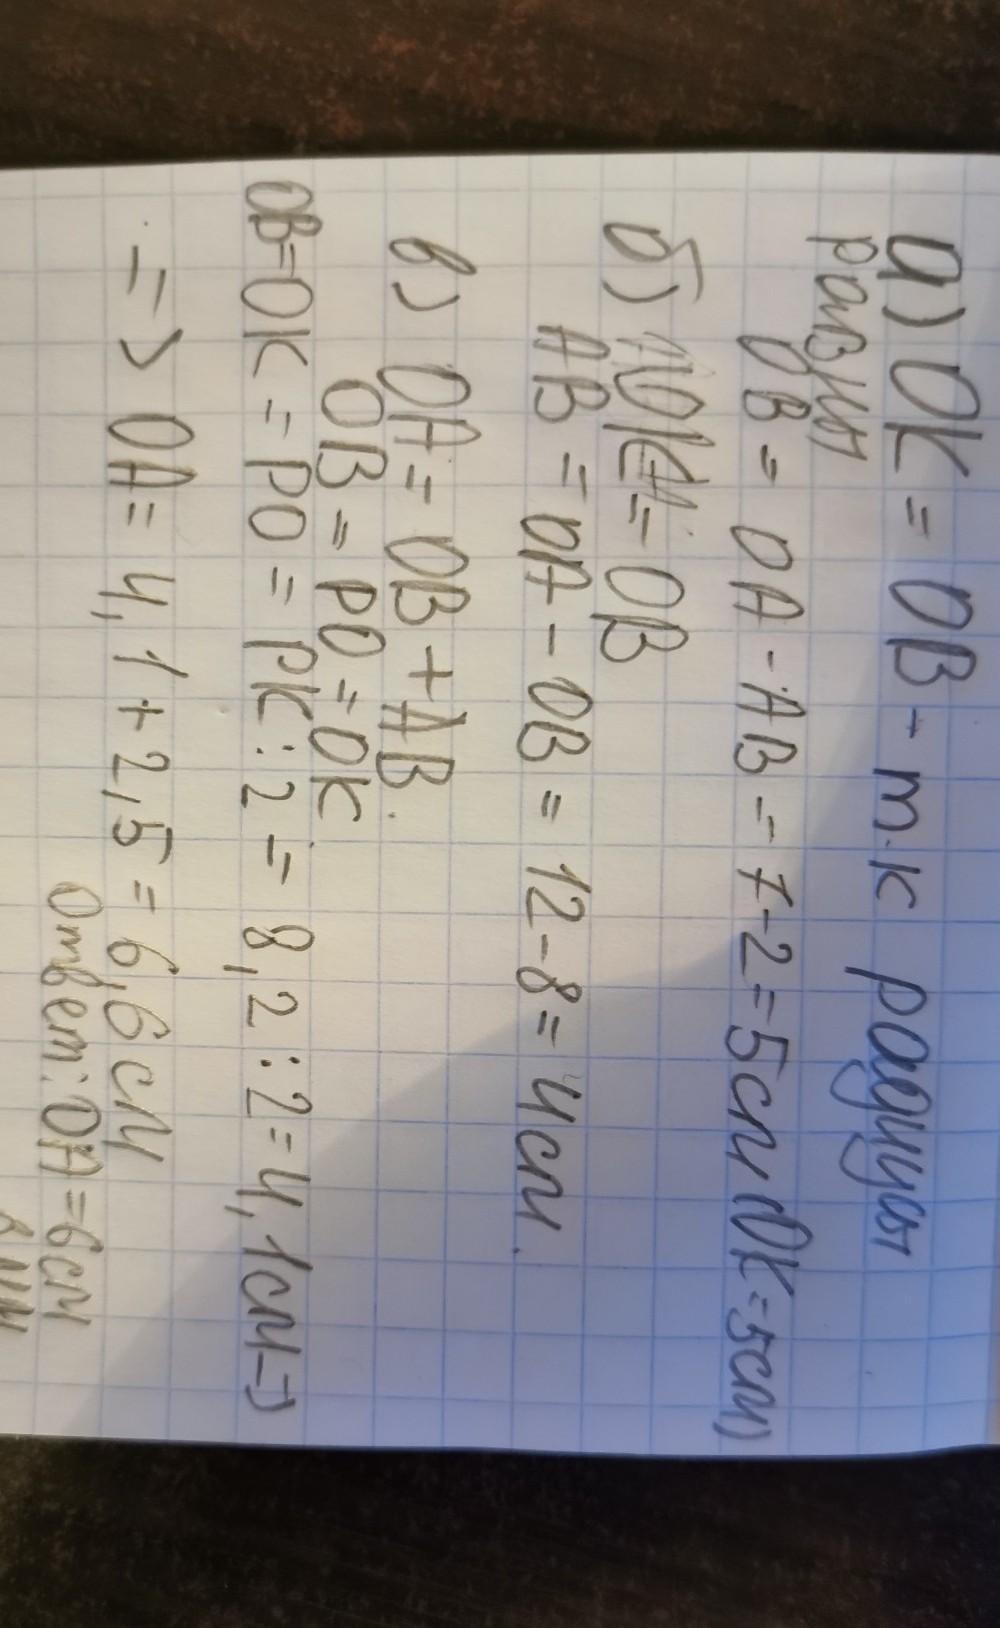 а) OK = OB - т.к радиусы
равны
OB = OA - AB = 7-2=5см (OK=5см)
б) = OB
AB = OA - OB = 12-8=4см.
в) OA = OB + AB.
OB = PO = OK
OB=OK = PO = PK:2 = 8,2:2=4,1см=>
=> OA= 4,1+2,5 = 6,6см
Ответ: OA=6см
6мм